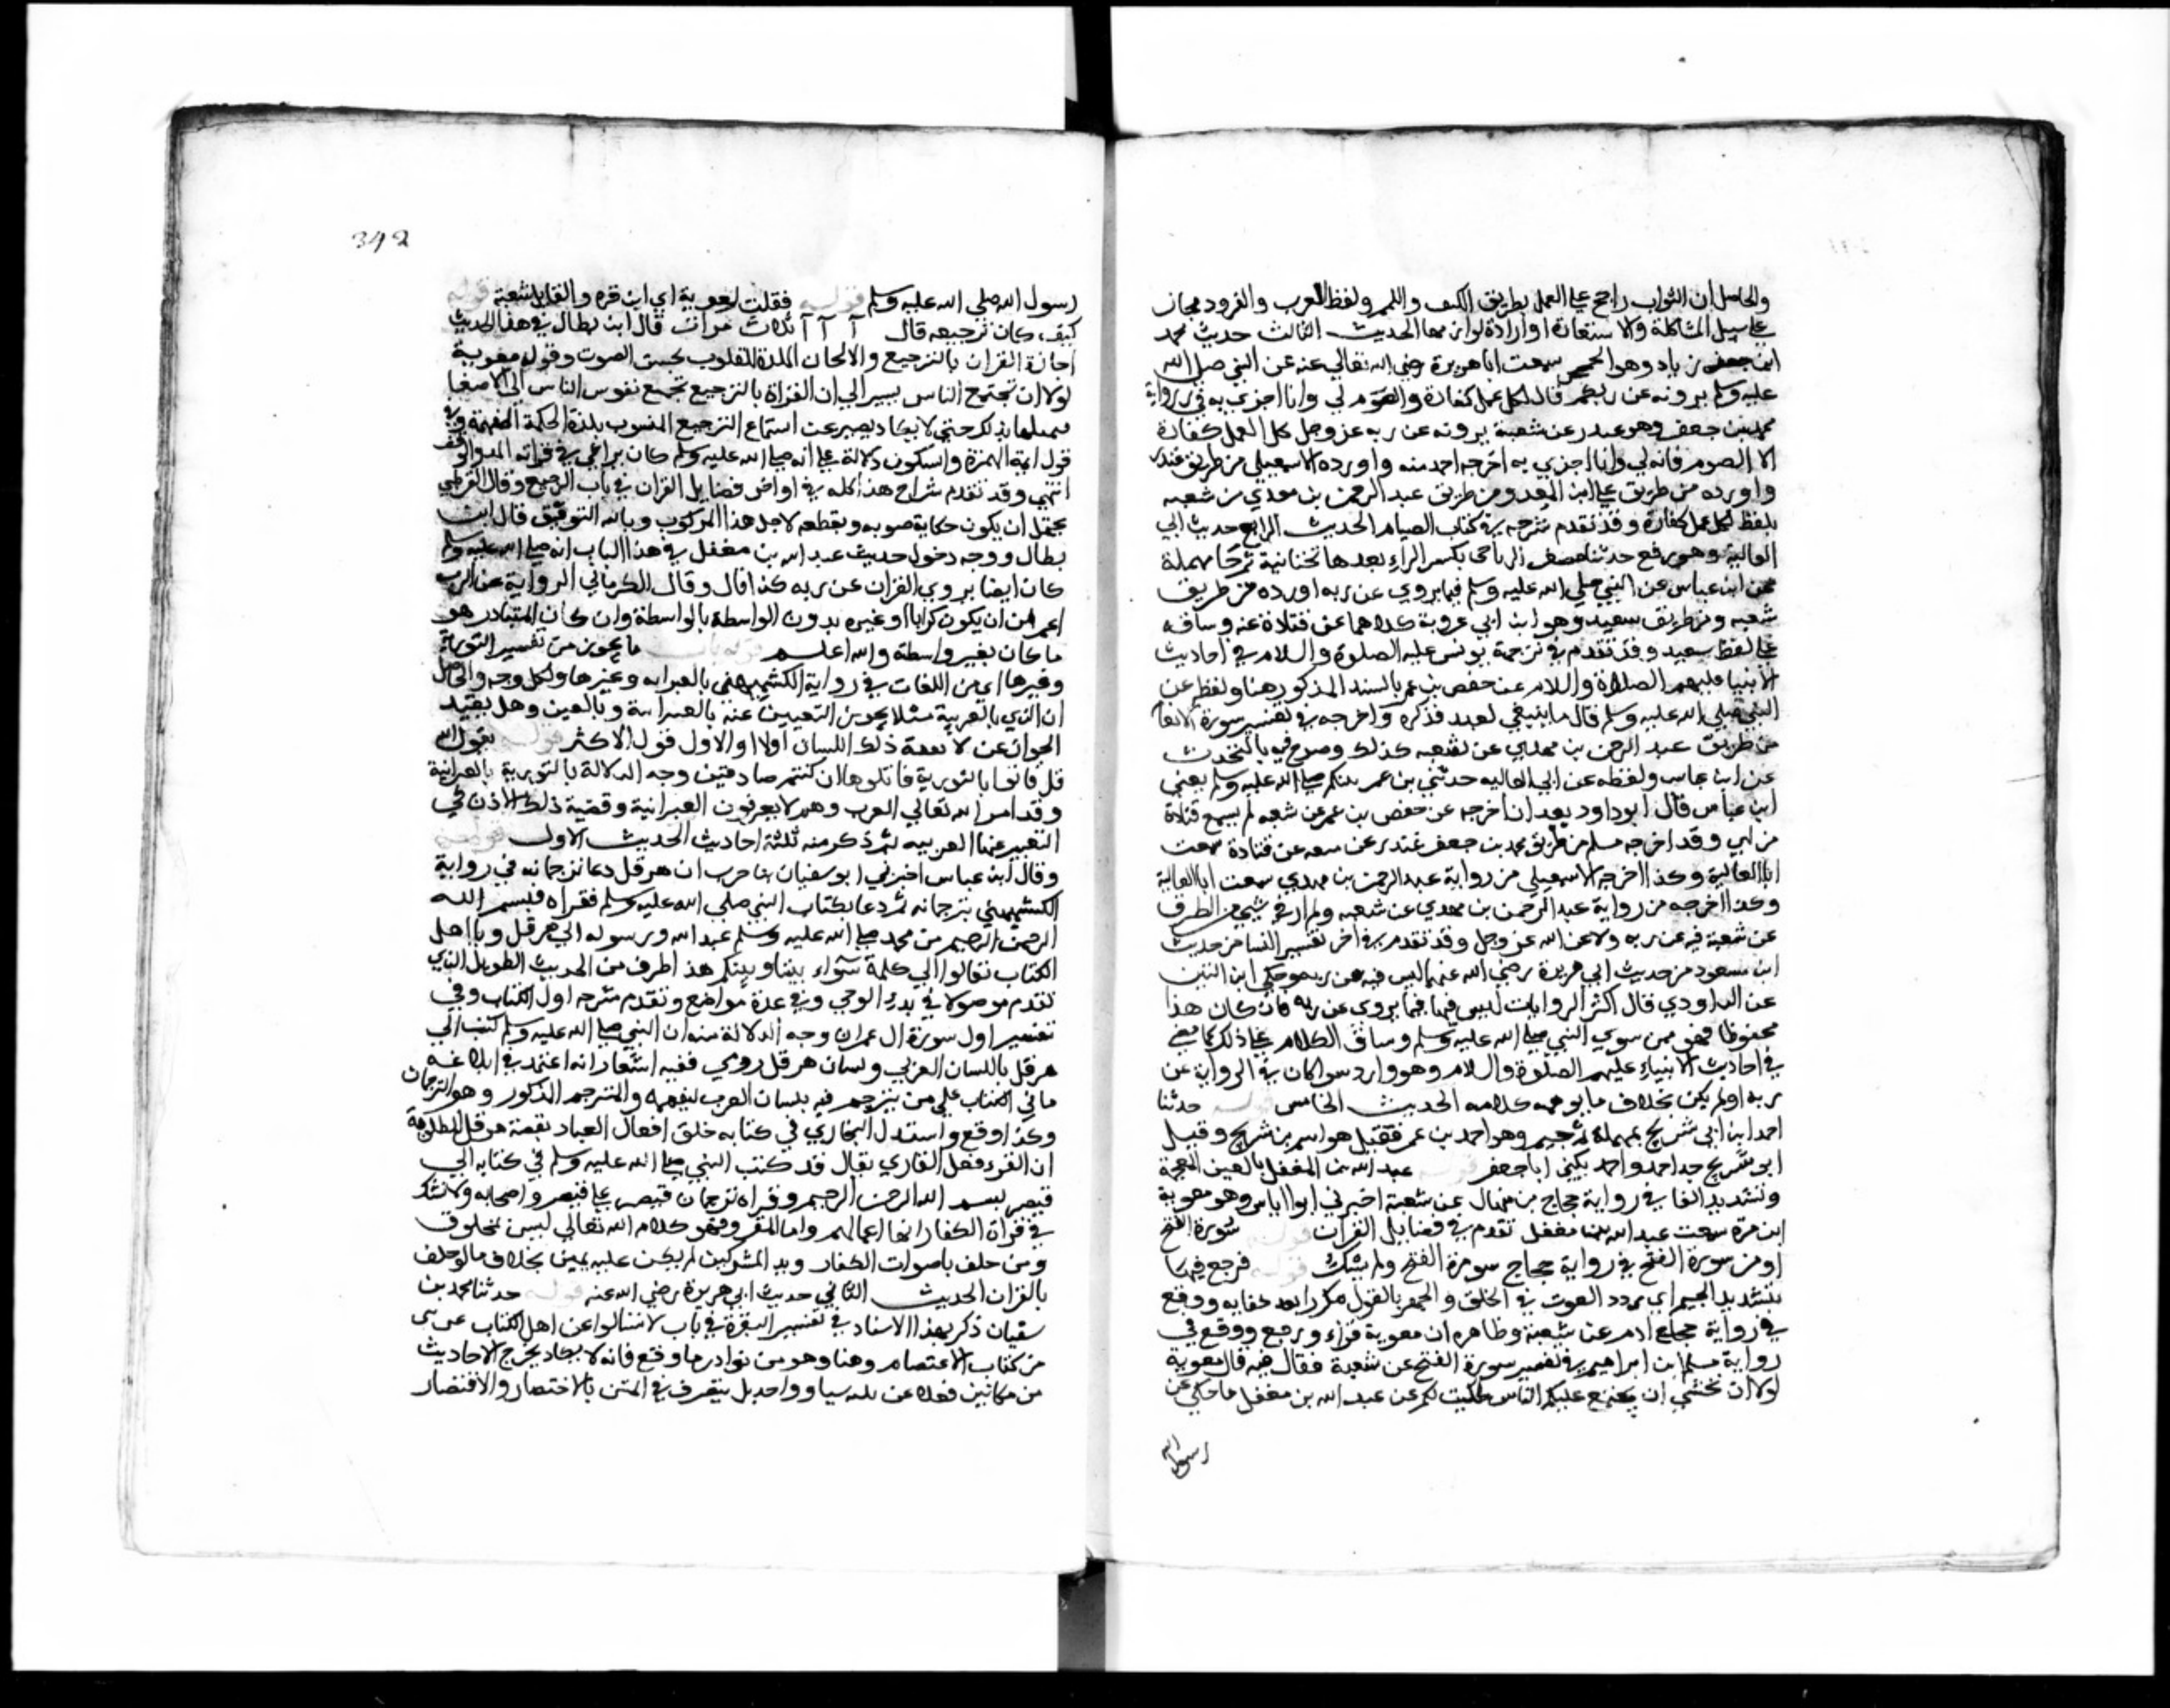 والحاصل ان الثواب راجح علي العمل بطريق الكيف والكم ولفظ القرب والفرود مجاز
علي سبيل المشاكلة والاستعارة او ارادة لوازمها الحديث الثالث حديث محمد
ابن جعفر زياد وهو الجمحي سمعت ابا هريرة رضي الله تعالي عنه عن النبي صلي الله
عليه وسلم يرونه عن ربكم قال لكل عمل كفارة والصوم لي وانا اجزي به في رواية
محمد بن جعفر وهو غندر عن شعبة يرونه عن ربه عز وجل كل العمل كفارة
الا الصوم فانه لي وانا اجزي به اخرجه احمد منه واورده الاسمعيلي من طريق غندر
واورده من طريق علي ابن الجعد ومن طريق عبد الرحمن بن مهدي عن شعبه
بلفظ لكل عمل كفارة وقد تقدم شرحه في كتاب الصيام الحديث الرابع حديث ابي
العالية وهو رفيع الرياحي بكسر الراء بعدها تحتانية ثم حا مهملة
عن ابن عباس عن النبي صلي الله عليه وسلم فيما يروي عن ربه اورده من طريق
شعبه ومن طريق سعيد وهو ابن ابي عروبة كلاهما عن قتادة عنه وساقه
علي لفظ سعيد وقد تقدم في ترجمة يونس عليه الصلوة والسلام في احاديث
الانبيا عليهم الصلاة والسلام عن حفص بن عمر بالسند المذكور هنا ولفظه عن
النبي صلي الله عليه وسلم قال ما ينبغي لعبد فذكره واخرجه في تفسير سورة الانعا
من طريق عبد الرحمن بن مهدي عن شعبه كذلك وصرح فيه بالتحديث
عن ابن عباس ولفظه عن ابي العاليه حدثني بن عم نبيكم صلي الله عليه وسلم يعني
ابن عباس قال ابو داود بعد ان اخرجه عن حفص بن عمر عن شعبه لم يسمع قتادة
من ابي وقد اخرجه مسلم من طريق محمد بن جعفر غندر عن سعبه عن قتادة سمعت
ابا العالية وكذا اخرجه الاسمعيلي من رواية عبد الرحمن بن مهدي سمعت ابا العالية
وكذا اخرجه من رواية عبد الرحمن بن مهدي عن شعبه ولم ار في شي من الطرف
عن شعبة فيه عن ربه ولا عن الله عز وجل وقد تقدم في اخر تفسير النسا من حديث
ابن مسعود من حديث ابي هريرة رضي الله عنهما ليس فيه عن ربه وحكي ابن التين
عن الداودي قال اكثر الروايات ليس فيها فيما يروي عن ربه فان كان هذا
محفوظا فهو ممن سوي النبي صلي الله عليه وسلم وساق الكلام علي ذلك كما مضي
في احاديث الانبياء عليهم الصلوة والسلام وهو وارد سوا كان في الرواية عن
ربه او لم يكن بخلاف ما يوهمه كلامه الحديث الخامس قوله حدثنا
احمد ابن ابي شريح بمهملة ثم جيم وهو احمد بن عمر فقيل هو اسم بن شريح وقيل
ابو شريح جد احمد واحمد يكني ابا جعفر قوله عبد الله بن المغفل بالغين المعجمة
وتشديد الفا في رواية حجاج بن منهال عن شعبة اخبرني ابو اياس وهو معوية
ابن مرة سمعت عبد الله بن مغفل تقدم في فضايل القران قوله سورة الفتح
او من سورة الفتح في رواية حجاج سورة الفتح ولم يشك قوله فرجع فيها
بتشديد الجيم اي ردد الصوت في الحلق والجهر بالقول مكررا بعد خفايه ووقع
في رواية ادم عن شعبة وظاهره ان معوية قراء ورجع ووقع في
رواية مسلم ابن ابراهيم في تفسير سورة الفتح عن شعبة فقال فيه قال معوية
لولا ان نخشي ان يجتمع عليكم الناس لحكيت لكم عن عبد الله بن مغفل ما حكي عن
رسول الله
342
رسول الله صلي الله عليه وسلم قوله فقلت لمعوية اي ابن قره والقايل شعبة قوله
كيف كان ترجيعه قال آ آ آ ثلاث مرات قال ابن بطال في هذا الحديث
اجازة القران بالترجيع والالحان الملذة للقلوب بحسن الصوت وقول معوية
لولا ان تجتمع الناس يسير الي ان القراة بالترجيع تجمع نفوس الناس الي الاصغا
حتي لا يكاد يصبر عن استماع الترجيع المشوب بلذة الحكمة المفهمة وفي
قول اية الهمزة والسكون دلالة علي انه صلي الله عليه وسلم كان يراعي في قراته المد والوقف
انتهي وقد تقدم شراح هذا كله في اواخر فضايل القران في باب الترجيع وقال القرطبي
يحتمل ان يكون حكاية صوبه ونقطعه لاجل هذا المركوب وبالله التوفيق قال ابن
بطال ووجه دخول حديث عبد الله بن مغفل في هذا الباب انه صلي الله عليه وسلم
كان ايضا يروي القران عن ربه كذا قال وقال الكرماني الرواية عن الرب
اعم من ان يكون قرانا او غيره بدون الواسطة بالواسطة وان كان المتبادر هو
ما كان بغير واسطة والله اعلم قوله باب ما يجوز من تفسير التورية
وغيرها اي من اللغات في رواية الكشميهني بالعبرانيه وغيرها ولكل وجه والحاصل
ان الذي بالعربية مثلا يجوز التعبير عنه بالعبرانية وبالعين وهل يقيد
الجواز عن لا يفقه ذلك اللسان اولا والاول قول الاكثر قوله لقول الله
قل فاتوا بالتورية فاتلوها ان كنتم صادقين وجه الدلالة بالتورية بالعبرانية
وقد امر الله تعالي العرب وهم لا يعرفون العبرانية وقضية ذلك الاذن في
التعبير عنها بالعربيه ثم ذكر منه ثلثة احاديث الحديث الاول قوله
وقال ابن عباس اخبرني ابو سفيان بن حرب ان هرقل دعا ترجمانه في رواية
الكشميهني بترجمانه ثم دعا بكتاب النبي صلي الله عليه وسلم فقراه فبسم الله
الرحمن الرحيم من محمد صلي الله عليه وسلم عبد الله ورسوله الي هرقل ويا اهل
الكتاب تعالوا الي كلمة سواء بيننا وبينكم هذا طرف من الحديث الطويل الذي
تقدم موصولا في بدء الوحي وفي عدة مواضع وتقدم شرحه اول الكتاب وفي
تفسير اول سورة ال عمران وجه الدلالة منه ان النبي صلي الله عليه وسلم كتب الي
هرقل باللسان العربي ولسان هرقل رومي ففيه اشعار انه اعتمد في ابلاغه
ما في الكتاب علي من يترجم فيه بلسان العرب ليفهمه والمترجم المذكور وهو الترجمان
وكذا وقع واستدل البخاري في كتابه خلق افعال العباد بقصة هرقل المطلوبة
ان القرء فعل القاري فقال قد كتب النبي صلي الله عليه وسلم في كتابه الي
قيصر بسم الله الرحمن الرحيم وقراه ترجمان قيصر علي قيصر واصحابه ولا نشك
في قراة الكفار انها اعمالهم واما المقرو فهو كلام الله تعالي ليس بمخلوق
ومن حلف باصوات الكفار وبد المشركين لم يكن عليه يمين بخلاف ما لو حلف
بالقران الحديث الثاني حديث ابي هريرة رضي الله عنه قوله حدثنا محمد بن
ذكر بهذا الاسناد في تفسير البقرة في باب لا تسالوا عن اهل الكتاب عن شي
من كتاب الاعتصام وهنا وهو من نوادر ما وقع فانه لا يكاد يخرج الاحاديث
من مكانين فضلا عن بل يتصرف في المتن بالاختصار والاقتصار